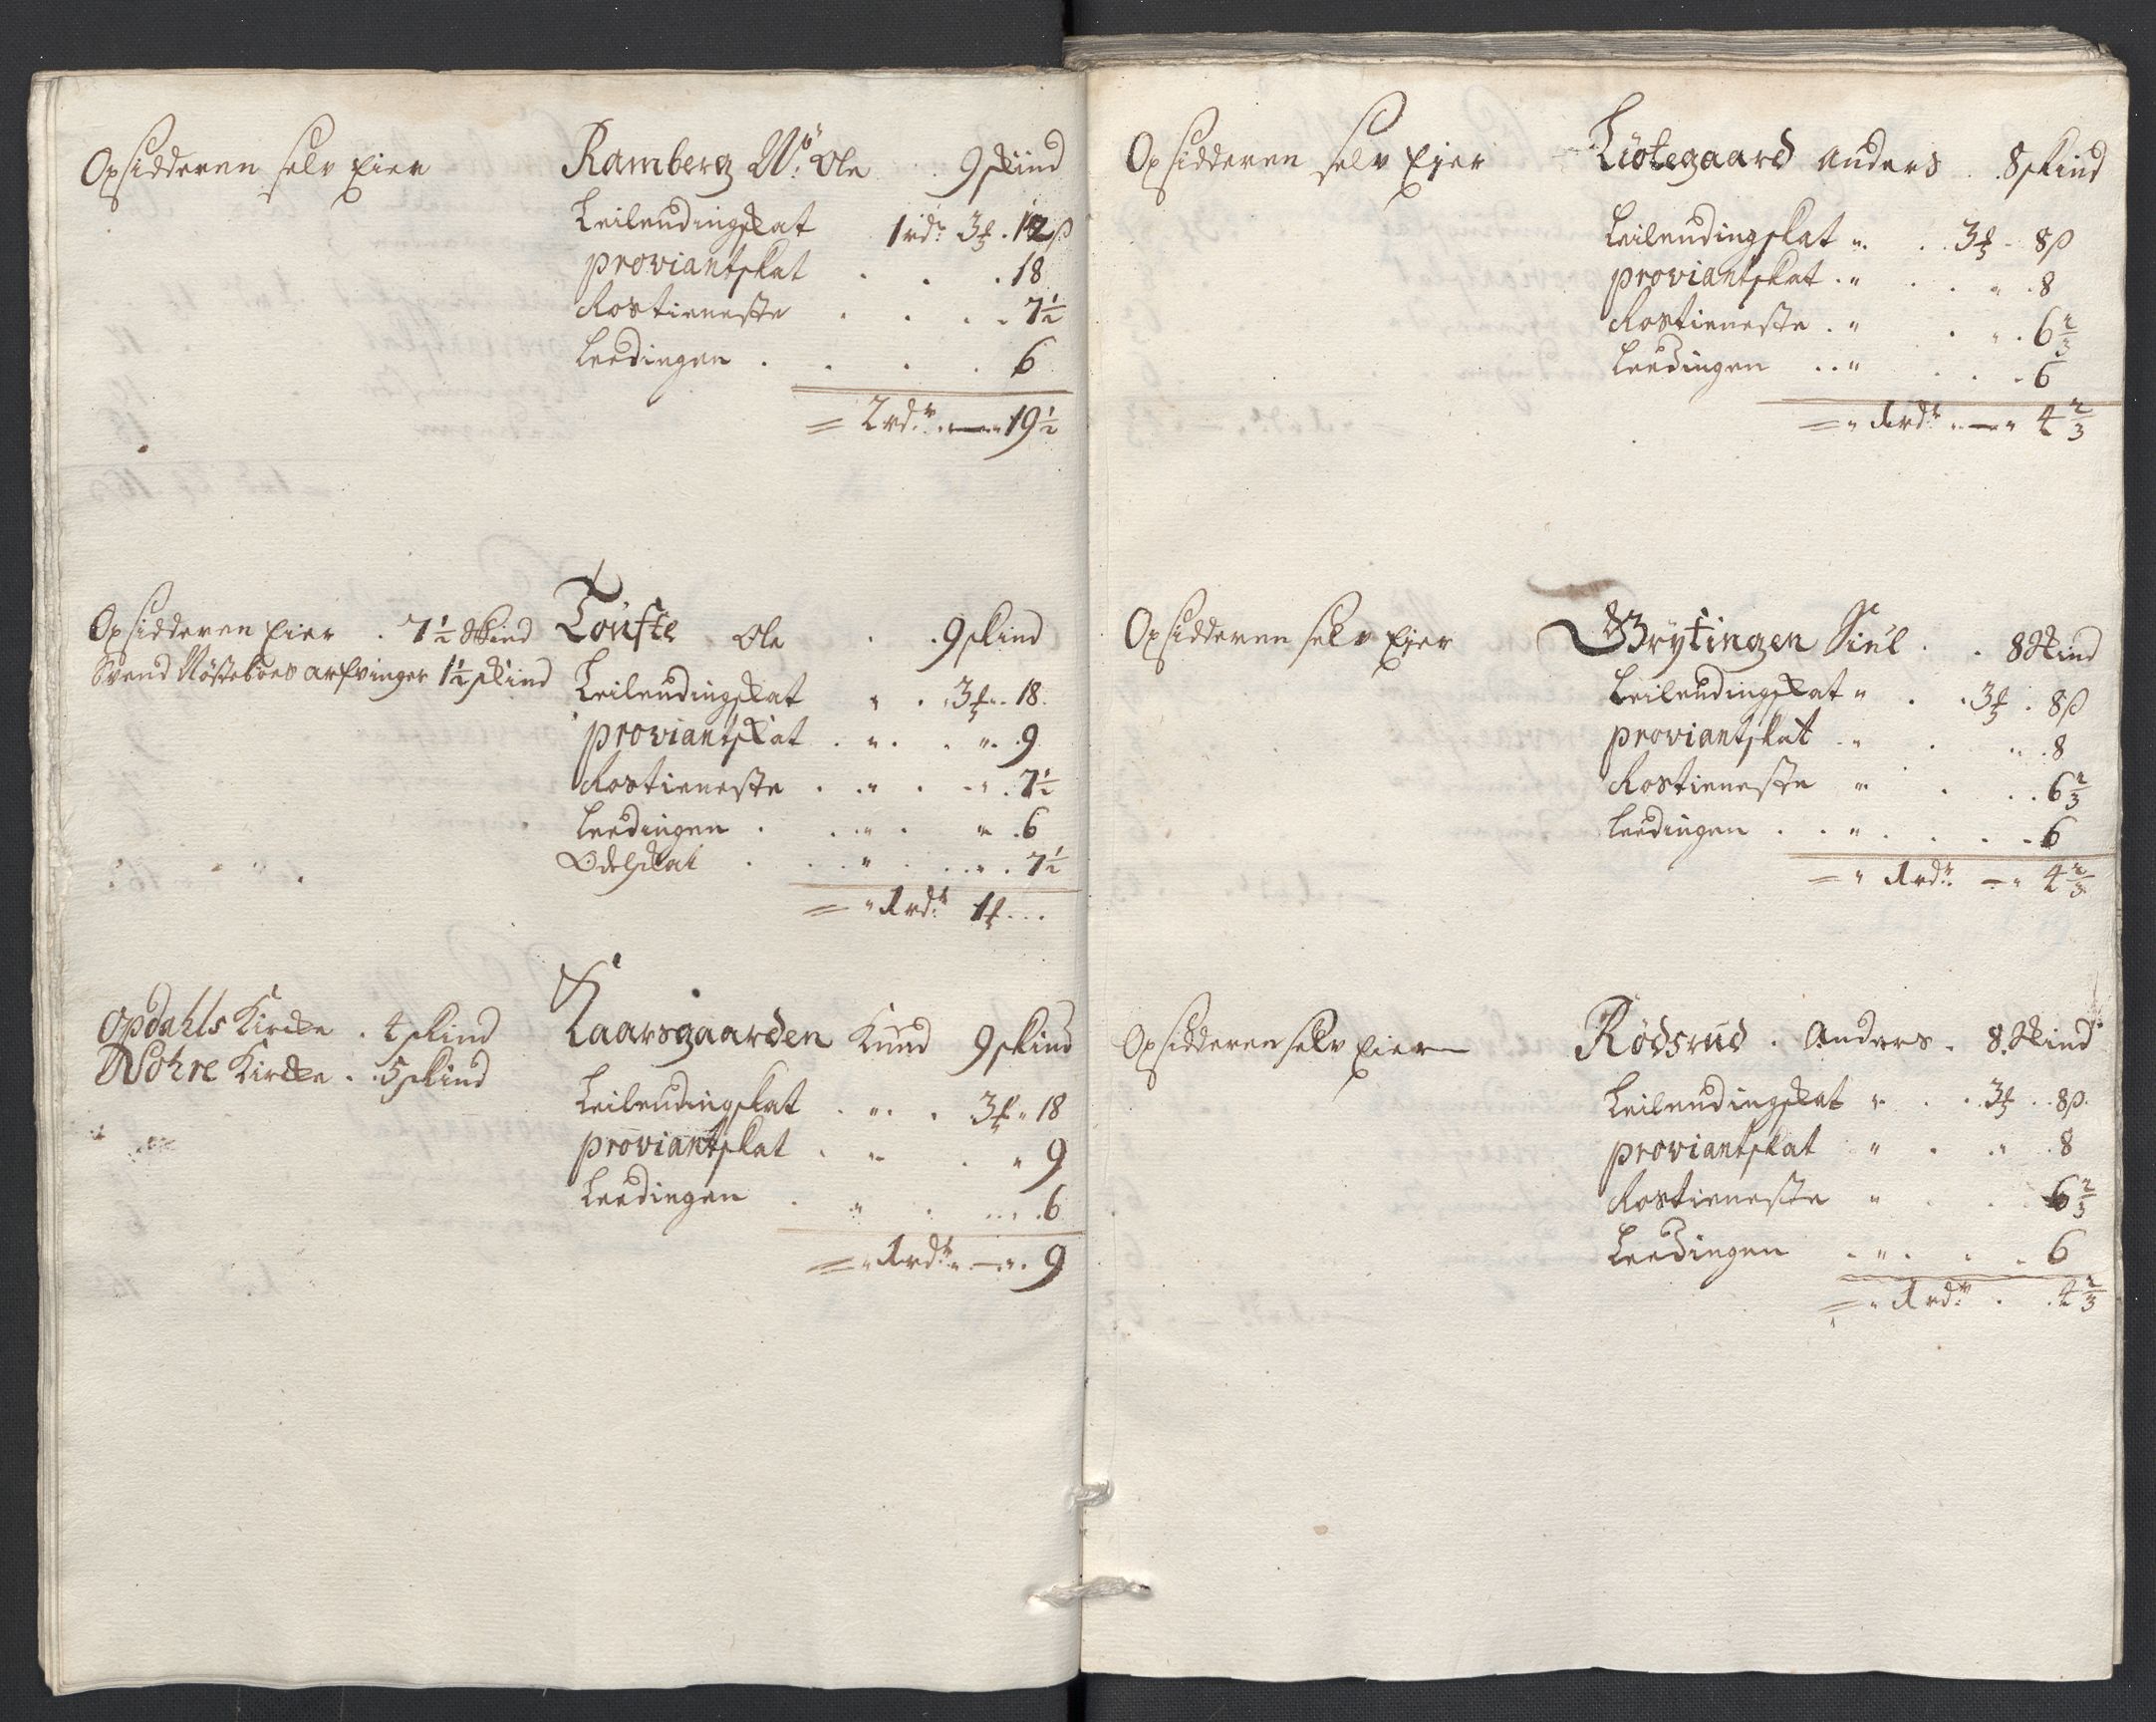 Opsidderen selv Eier
Ramberg Ole 9 skind
Leilendingskat 1 rdr 3 ₰ 12 ß
proviantskat . . . 18
Rostieneste . . . 7½
Leedingen . . . 6
= 2 rdr — 19½
Opsidderen Eier . 7½ Skind
Svend Nøsteboes arfvinger 1½ skind
Toufte Ole . . 9 skind
Leilendingskat " . 3 ₰ . 18
proviantskat . " . " . 9
Rostieneste . " . " . 7½
Leedingen . " . " . 6
Odelskat . " . " . 7½
= " 1 rdr 1 ₰ . . .
Opdahls Kircke . 4 skind
Nohre Kircke . 5 skind
Kaarsgaarden Knud 9 skind
Leilendingskat . " . 3 ₰ " 18
proviantskat . " . " 9
Leedingen . " . . . 6
= " 1 rdr " — " . 9
Opsidderen selv Ejer
Liøtegaard Anders . 8 skind
Leilendingskat " . 3 ₰ - 8 ß
proviantskat . " . " . 8
Rostieneste . " . " . 6⅔
Leedingen . . " . . . 6
= " 1 rdr " — " 4⅔
Opsidderen selv Ejer
Grytingen Siul . . 8 Skind
Leilendingskat " . . 3 ₰ . 8 ß
proviantskat . " . " . 8
Rostieneste " . . . 6⅔
Leedingen . . " . . . 6
= " 1 rdr — " 4⅔
Opsidderen selv Eier
Rødsrud . Anders . 8 Skind
Leilendingskat " . . 3 ₰ . . 8 ß.
proviantskat " . " . 8
Rostieneste " . . 6⅔
Leedingen . " . . . 6
= " 1 rdr . . 4⅔